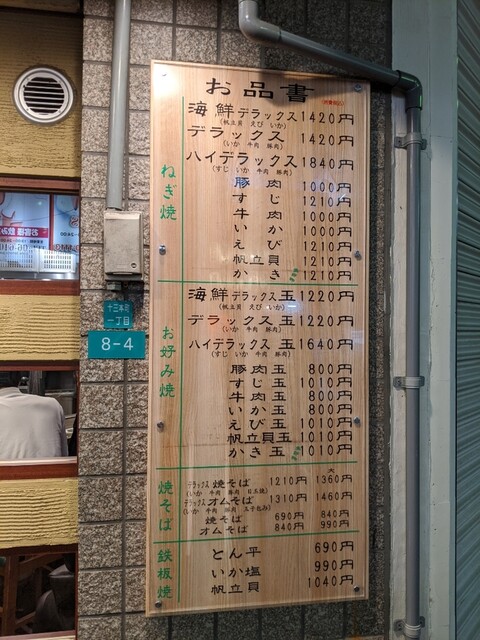 お品書
ねぎ焼
海鮮デラックス 1420円
(帆立貝 えび いか)
デラックス 1420円
(いか 牛肉 豚肉)
ハイデラックス 1840円
(すじ いか 牛肉 豚肉)
豚肉 1000円
すじ 1210円
牛肉 1000円
いか 1000円
えび 1210円
帆立貝 1210円
かき 1210円
お好み焼
海鮮デラックス玉 1220円
(帆立貝 えび いか)
デラックス玉 1220円
(いか 牛肉 豚肉)
ハイデラックス玉 1640円
(すじ いか 牛肉 豚肉)
豚肉玉 800円
すじ玉 1010円
牛肉玉 800円
いか玉 800円
えび玉 1010円
帆立貝玉 1010円
かき玉 1010円
焼そば
大
デラックス焼そば 1210円 1360円
(いか 牛肉 豚肉 目玉焼)
デラックスオムそば 1310円 1460円
(いか 牛肉 豚肉 玉子包み)
焼そば 690円 840円
オムそば 840円 990円
鉄板焼
とん平 690円
いか塩 990円
帆立貝 1040円
十三本町
一丁目
8-4